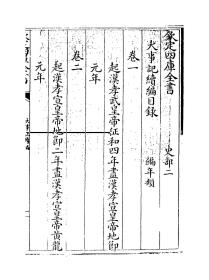 欽定四庫全書　史部二
大事記續編目錄　編年類
卷一
起漢孝武皇帝征和四年盡漢孝宣皇帝地節
元年
卷二
起漢孝宣皇帝地節二年盡漢孝宣皇帝黃龍
元年